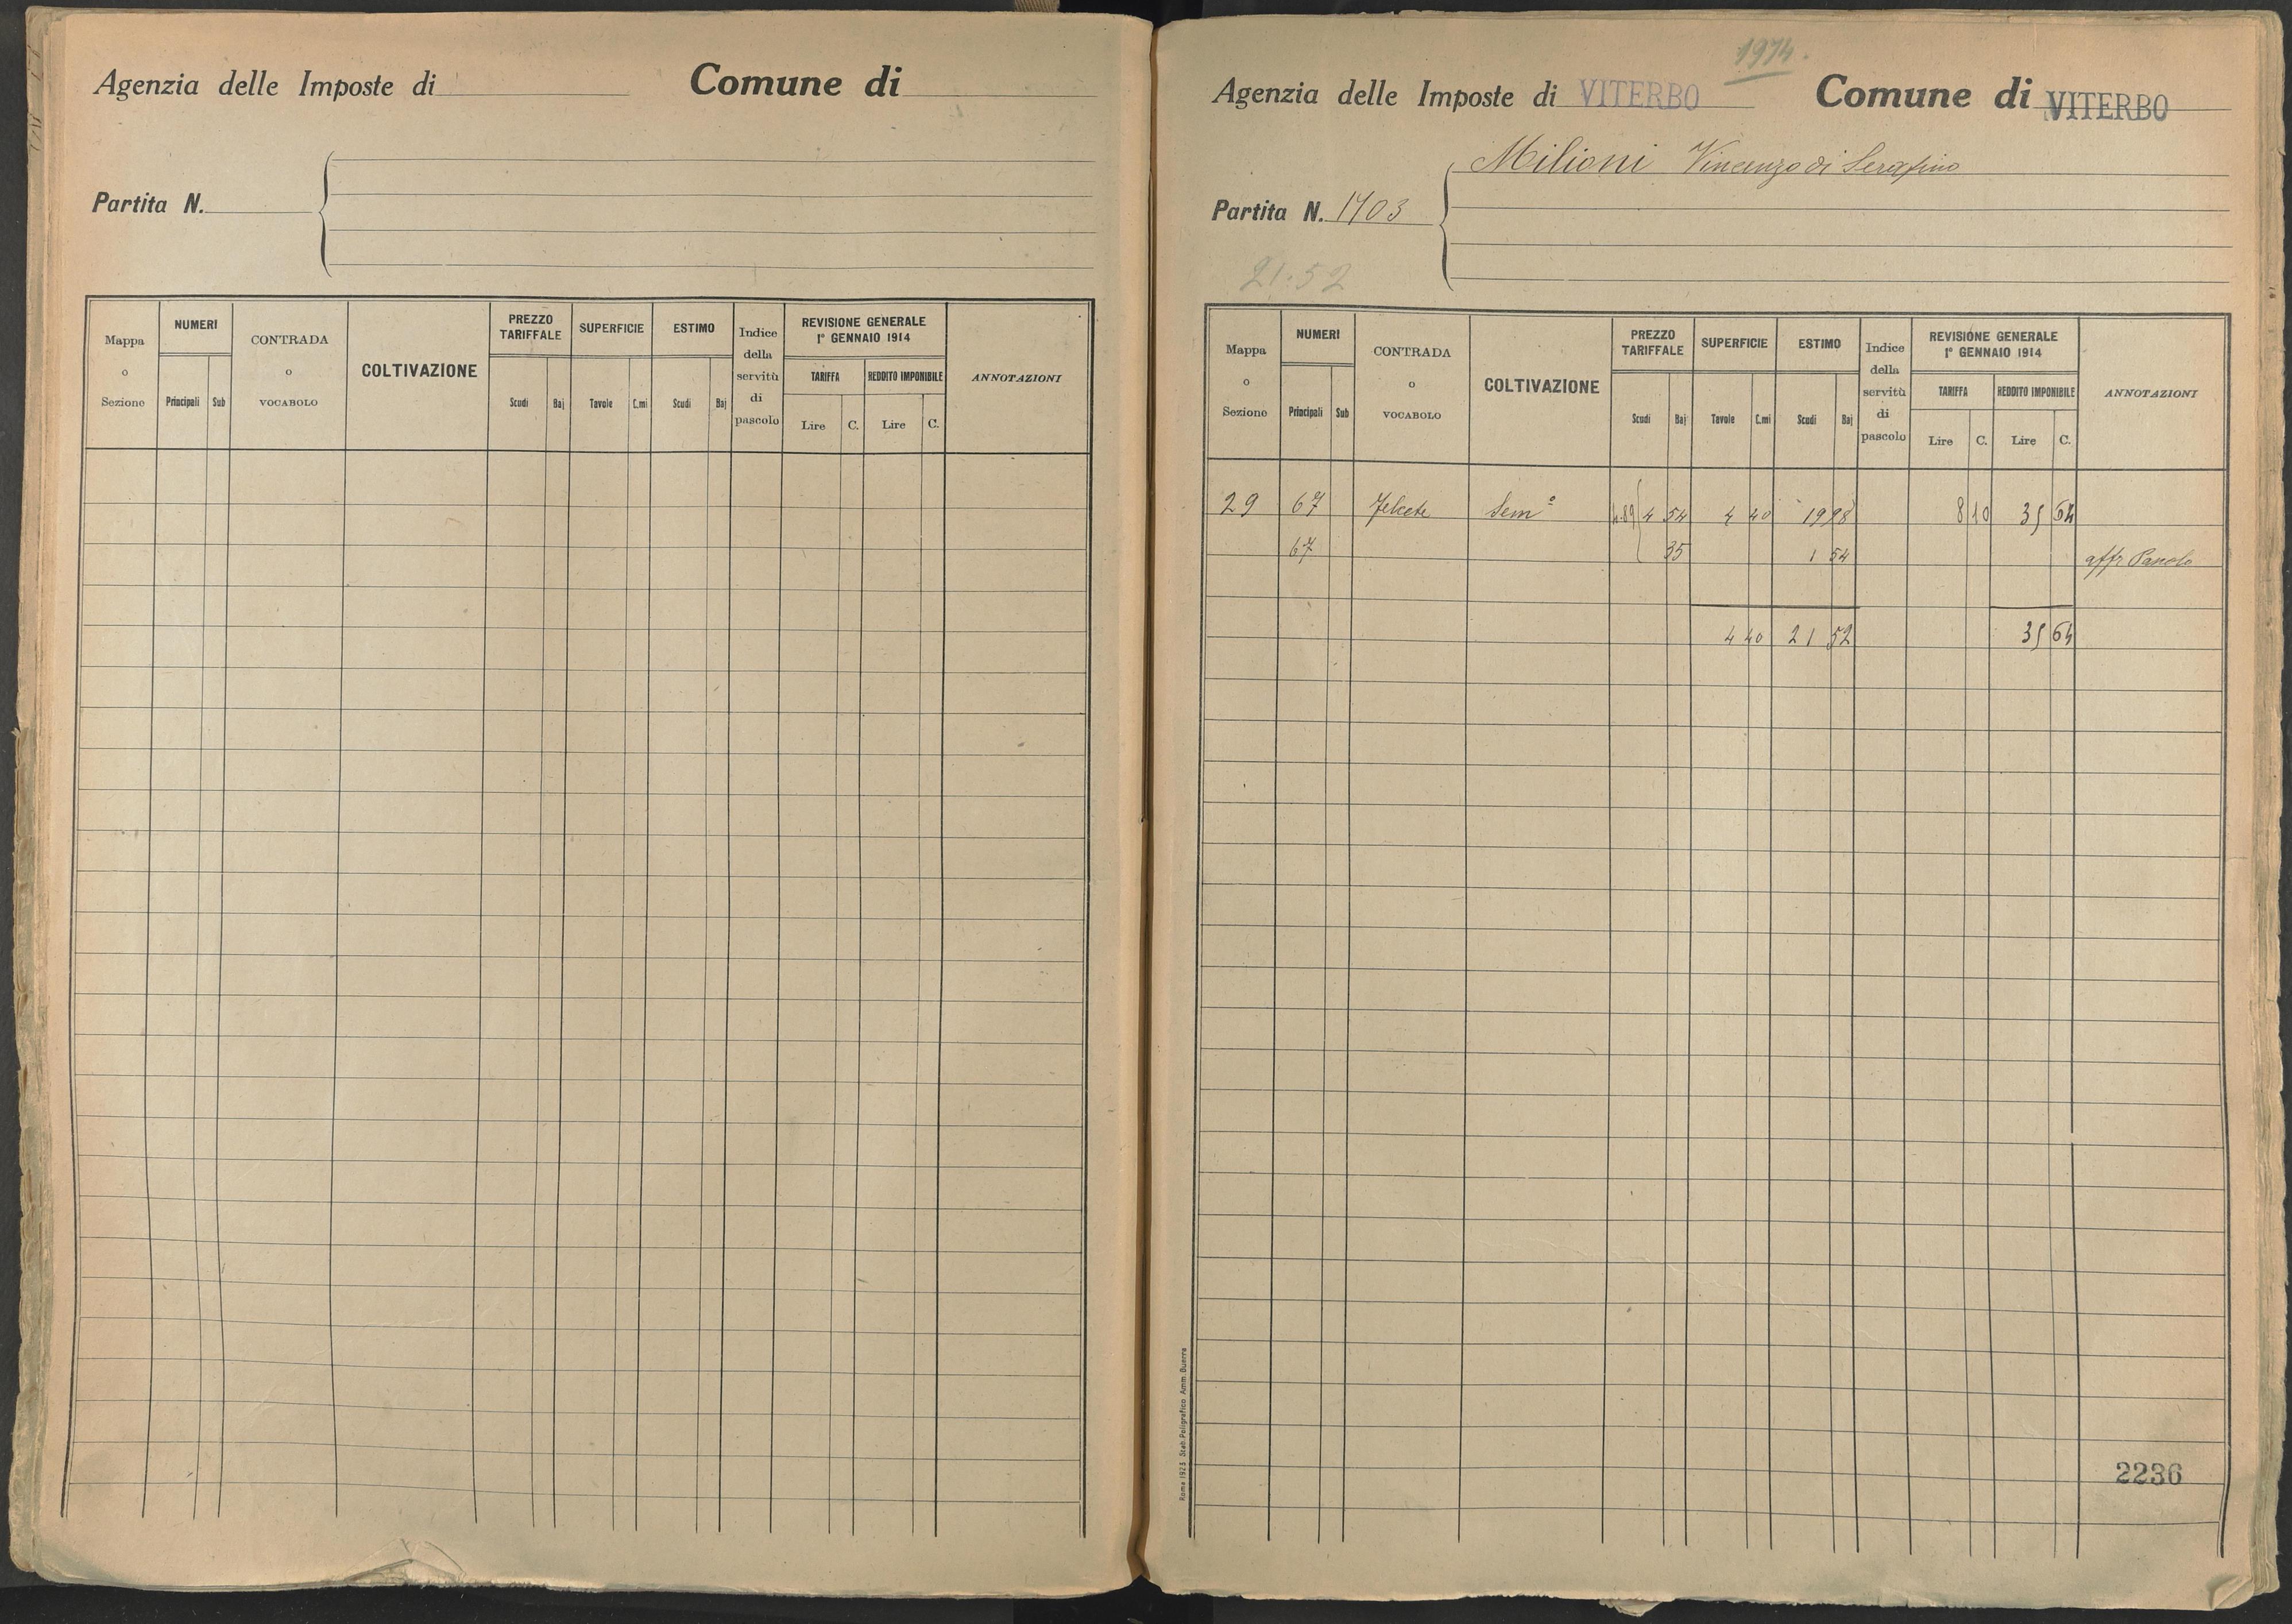 Agenzia delle Imposte di Comune di
Partita N.
Mappa o Sezione
NUMERI
Principali Sub
CONTRADA o VOCABOLO
COLTIVAZIONE
PREZZO TARIFFALE
Scudi Baj
SUPERFICIE
Tavole C.mi
ESTIMO
Scudi Baj
Indice della servitù di pascolo
REVISIONE GENERALE
1° GENNAIO 1914
TARIFFA REDDITO IMPONIBILE
Lire C. Lire C.
ANNOTAZIONI
1974.
Agenzia delle Imposte di VITERBO Comune di VITERBO
Milioni Vincenzo di Serafino
Partita N. 1703
21.52
Mappa o Sezione
NUMERI
Principali Sub
CONTRADA o VOCABOLO
COLTIVAZIONE
PREZZO TARIFFALE
Scudi Baj
SUPERFICIE
Tavole C.mi
ESTIMO
Scudi Baj
Indice della servitù di pascolo
REVISIONE GENERALE
1° GENNAIO 1914
TARIFFA REDDITO IMPONIBILE
Lire C. Lire C.
ANNOTAZIONI
29 67 Felcete Sem° 4.89 4 54 4 40 19 98 8 10 35 64
67 35 1 54 affr
4 40 21 52 35 64
Roma 1923 Stab. Poligrafico Amm. Guerra
2236